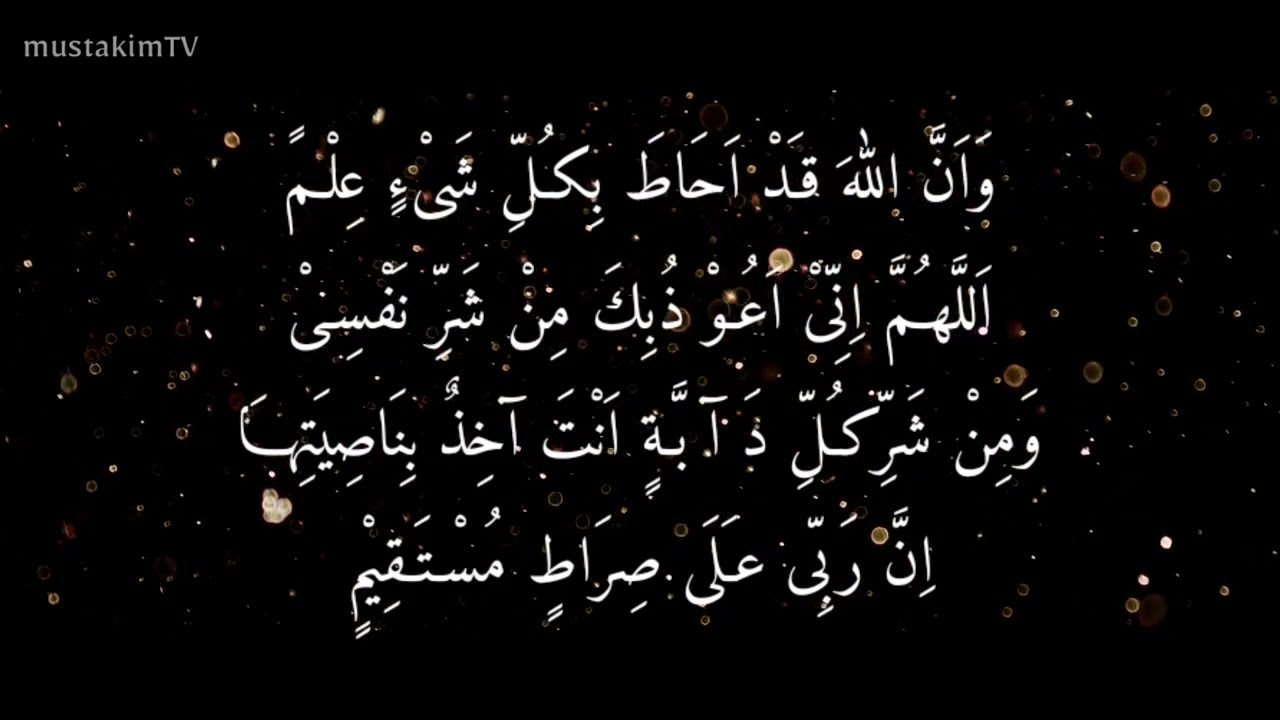 mustakimTV
وَاَنَّ اللهَ قَدْ اَحَاطَ بِكُلِّ شَىْءٍ عِلْمً
اَللَّهُمَّ اِنِّىْ اَعُوْ ذُبِكَ مِنْ شَرِّ نَفْسِىْ
وَمِنْ شَرِّكُلِّ دَ آ بَّةٍ اَنْتَ آخِذٌ بِنَاصِيَتِهَا
اِنَّ رَبِّى عَلَى صِرَاطٍ مُسْتَقِيْمٍ